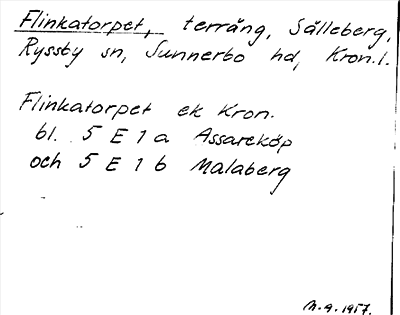 Flinkatorpet, terräng, Sälleberg,
Ryssby sn, Sunnerbo hd, Kron.l.
Flinkatorpet ek Kron.
bl. 5 E 1 a Assareköp
och 5 E 1 b Målaberg
M.A. 1957.